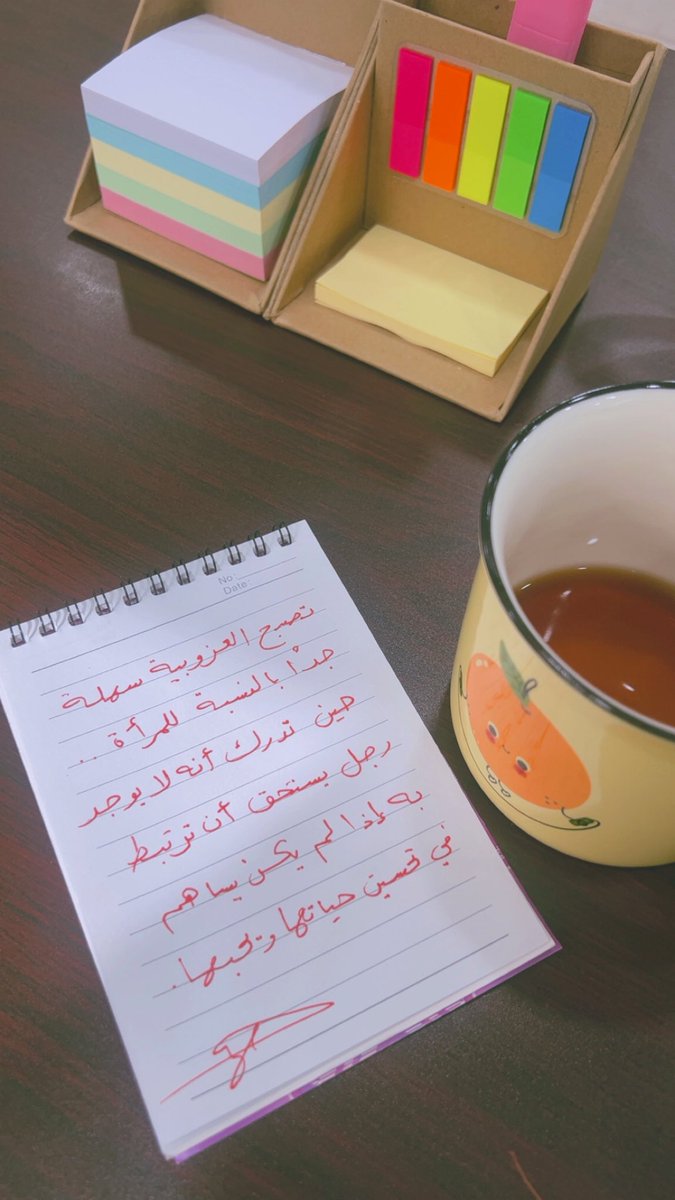 No:
Date:
تصبح العزوبية سهلة
جداً بالنسبة للمرأة ..
حين تدرك أنه لا يوجد
رجل يستحق أن ترتبط
به إذا لم يكن يساهم
في تحسين حياتها وتحبها.